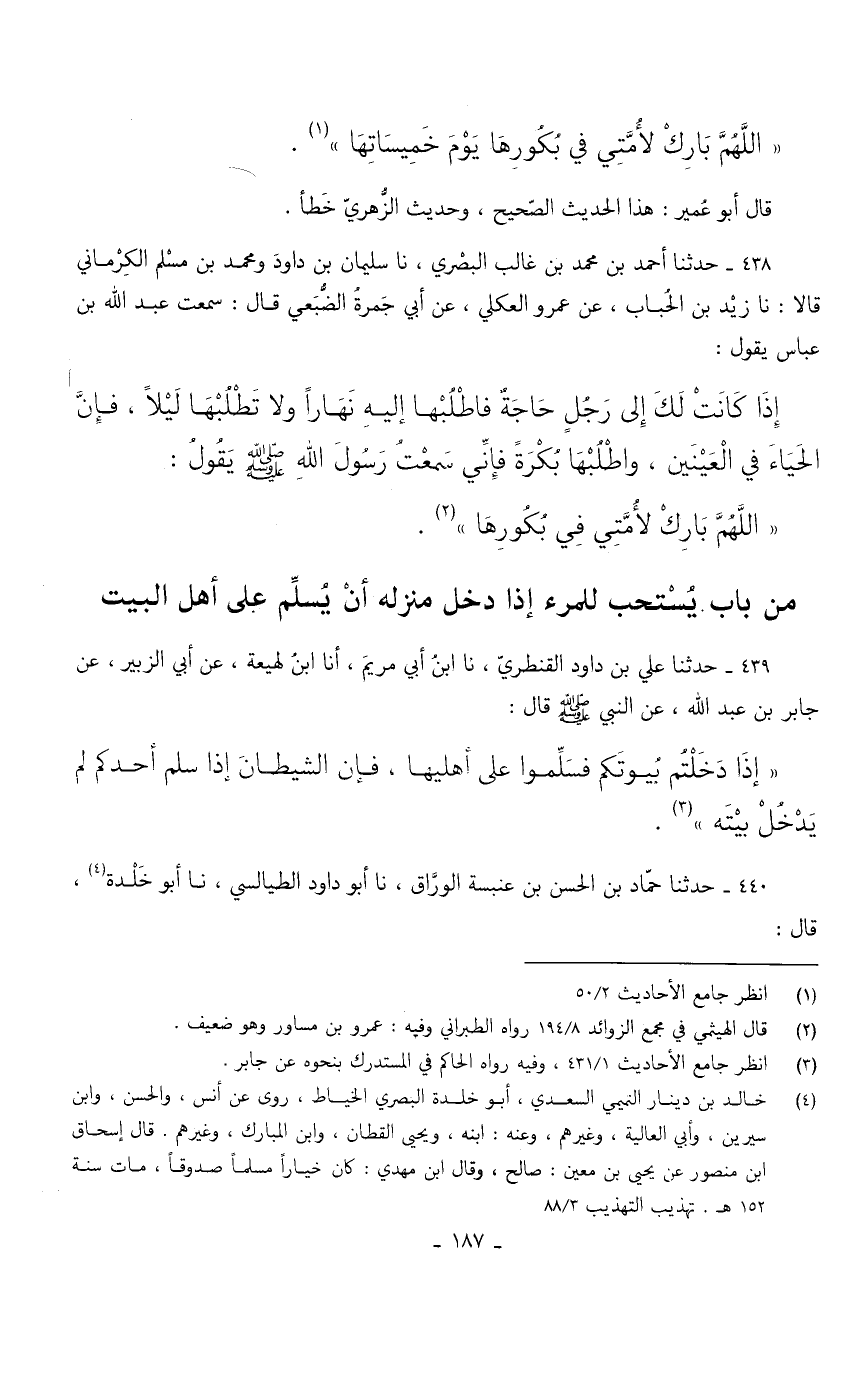 « اللَّهُمَّ بَارِكْ لأُمَّتِي فِي بُكُورِهَا يَوْمَ خَمِيسَاتِهَا »(١) .
قال أبو عُمير : هذا الحديث الصّحيح ، وحديث الزُّهريّ خَطأ .
٤٣٨ ـ حدثنا أحمد بن محمد بن غالب البصْري ، نا سليمان بن داودَ ومحمد بن مسْلم الكِرْماني
قالا : نا زيْد بن الحُباب ، عن عمرو العكلي ، عن أبي جَمرةُ الضُّبَعي قال : سمعت عبد الله بن
عباس يقول :
إِذَا كَانَتْ لَكَ إِلى رَجُلٍ حَاجَةٌ فاطْلُبْها إليهِ نَهَاراً ولا تَطْلُبْهَا لَيْلاً ، فإِنَّ
الحَيَاءَ في الْعَيْنَين ، واطْلُبْهَا بُكْرَةً فإنِّي سَمعْتُ رَسُولَ اللهِ ﷺ يَقُولُ :
« اللَّهُمَّ بَارِكْ لأُمَّتِي فِي بُكُورِهَا »(٢) .
من باب يُسْتحب للمرء إذا دخل منزله أنْ يُسلِّم على أهل البيت
٤٣٩ ـ حدثنا علي بن داود القنطريّ ، نا ابنُ أبي مريمَ ، أنا ابنُ لهيعة ، عن أبي الزبير ، عن
جابر بن عبد الله ، عن النبي ﷺ قال :
« إِذَا دَخَلْتُم بُيوتَكم فسَلِّموا على أهليها ، فإن الشيطانَ إذا سلم أحدكم لم
يَدْخُلْ بيْتَه »(٣) .
٤٤٠ ـ حدثنا حمّاد بن الحسن بن عنبسة الورَّاق ، نا أبو داود الطيالسي ، نا أبو خَلْدة(٤) ،
قال :
(١) انظر جامع الأحاديث ٥٠/٢
(٢) قال الهيثمي في مجمع الزوائد ١٩٤/٨ رواه الطبراني وفيه : عمرو بن مساور وهو ضعيف .
(٣) انظر جامع الأحاديث ٤٣١/١ ، وفيه رواه الحاكم في المستدرك بنحوه عن جابر .
(٤) خالد بن دينار التميمي السعدي ، أبو خلدة البصري الخياط ، روى عن أنس ، والحسن ، وابن
سيرين ، وأبي العالية ، وغيرهم ، وعنه : ابنه ، ويحيى القطان ، وابن المبارك ، وغيرهم . قال إسحاق
ابن منصور عن يحيى بن معين : صالح ، وقال ابن مهدي : كان خياراً مسلماً صدوقاً ، مات سنة
١٥٢ هـ . تهذيب التهذيب ٨٨/٣
ـ ١٨٧ ـ